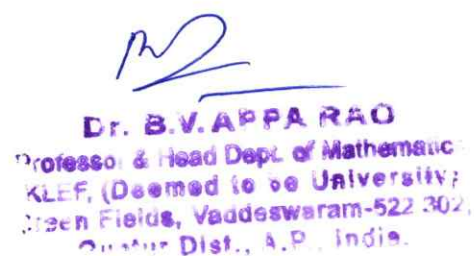 Dr. B.V. APPA RAO
Professo. & Head Dept. of Mathematic
KLEF, (Deemed to be University)
Green Fields, Vaddeswaram-522 302,
Dist., A.P., India.